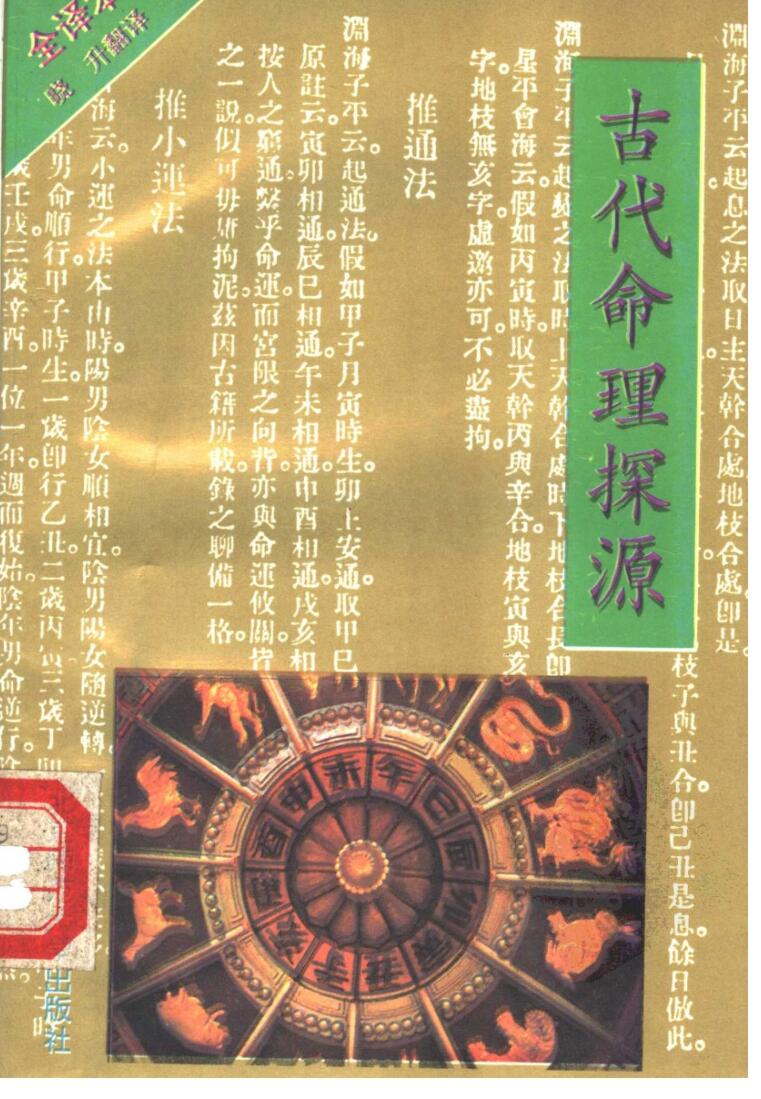 全译本
晓升翻译
古代命理探源
淵海子平云起息之法取日主天幹合處。地枝合處。卽是。
枝子與丑合。卽己丑是息。餘日倣此。
淵海子平云。起變之法。取時上天幹合處。時下地枝合長卽
星平會海云。假如丙寅時。取天幹丙與辛合。地枝寅與亥
字。地枝無亥字。虛邀亦可。不必盡拘。
推通法
淵海子平云。起通法。假如甲子月寅時生。卯上安通。取甲巳
原註云。寅卯相通。辰巳相通。午未相通。申酉相通。戌亥相
按人之窮通。繫乎命運。而宮限之向背。亦與命運攸關。皆
之一說。似可毋庸拘泥。茲因古籍所載。錄之聊備一格。
推小運法
海云。小運之法本由時。陽男陰女順相宜。陰男陽女隨逆轉。
年男命順行。甲子時生。一歲卽行乙丑。二歲丙寅。三歲丁
歲壬戌。三歲辛酉。一位一年。週而復始。陰年男命逆行。
未午巳辰卯寅丑子亥戌酉申
出版社